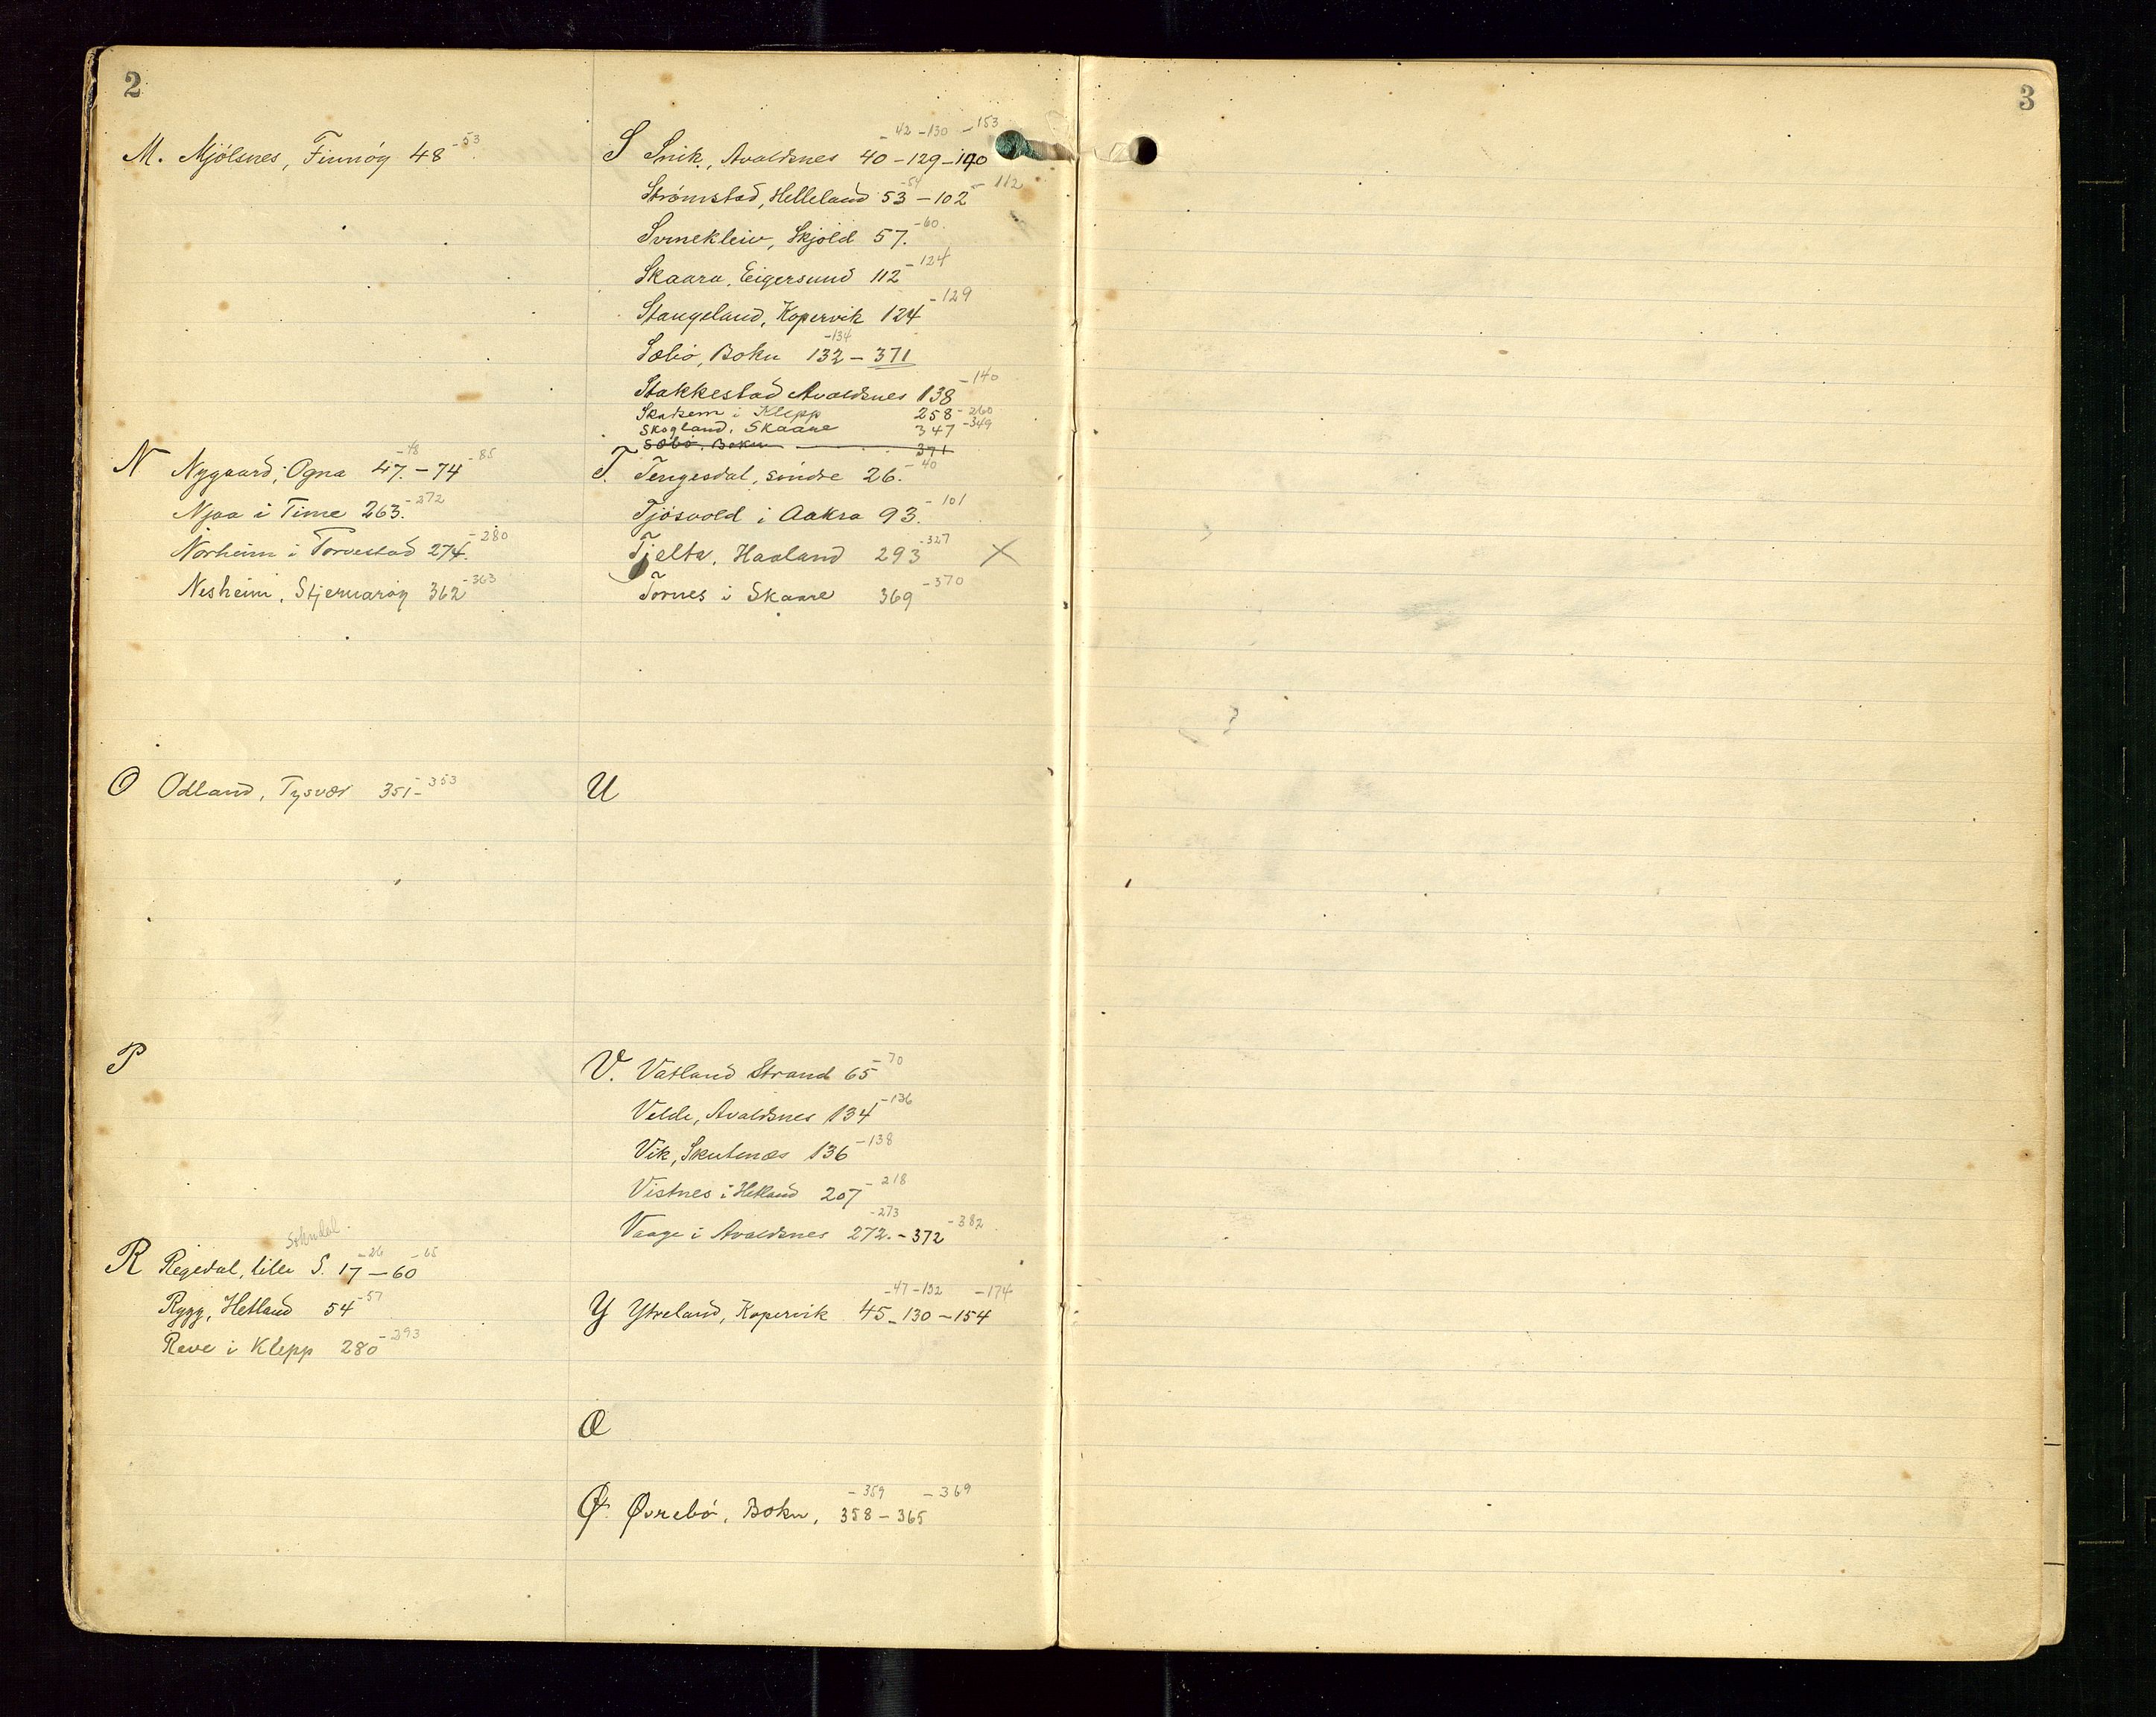 2
M. Mjölsnes, Finnöy 48-53
N Nygaard, Ogna 47.-48 - 74-85
Njaa i Time 263.-272
Norheim i Torvestad 274.-280
Nesheim, Stjernaröy 362-363
O Odland, Tysvær 351-353
P
Sokndal.
R Regedal, lille S. 17-26 - 60-65
Rygg, Hetland 54-57
Reve i Klepp 280-293
-42 -130 -153
S Snik, Avaldsnes 40-129-140
Strömstad, Helleland 53-54 - 102-112
Svinekleiv, Skjold 57.-60.
Skaara, Eigersund 112-124
Stangeland, Kopervik 124-129
-134
Sæbö, Bokn 132 - 371
Stakkestad Avaldsnes 138-140
i Klepp 258-260
Skogland, Skaare 347-349
Sæbö, Bokn 371
T. Tengesdal, Sindre 26.-40
Tjösvold i Aakra 93.-101
Tjelta, Haaland 293-327 X
Tornes i Skaare 369-370
U
V. Vatland Strand 65-70
Velde, Avaldsnes 134-136
Vik, Skutenæs 136-138
Vistnes i Hetland 207-218
Vaage i Avaldsnes 272.-273 - 372-382
-47-132 -174
Y Ytreland, Kopervik 45-130-154
Æ
-359 -369
Ø Øvrebö, Bokn, 358-365
3